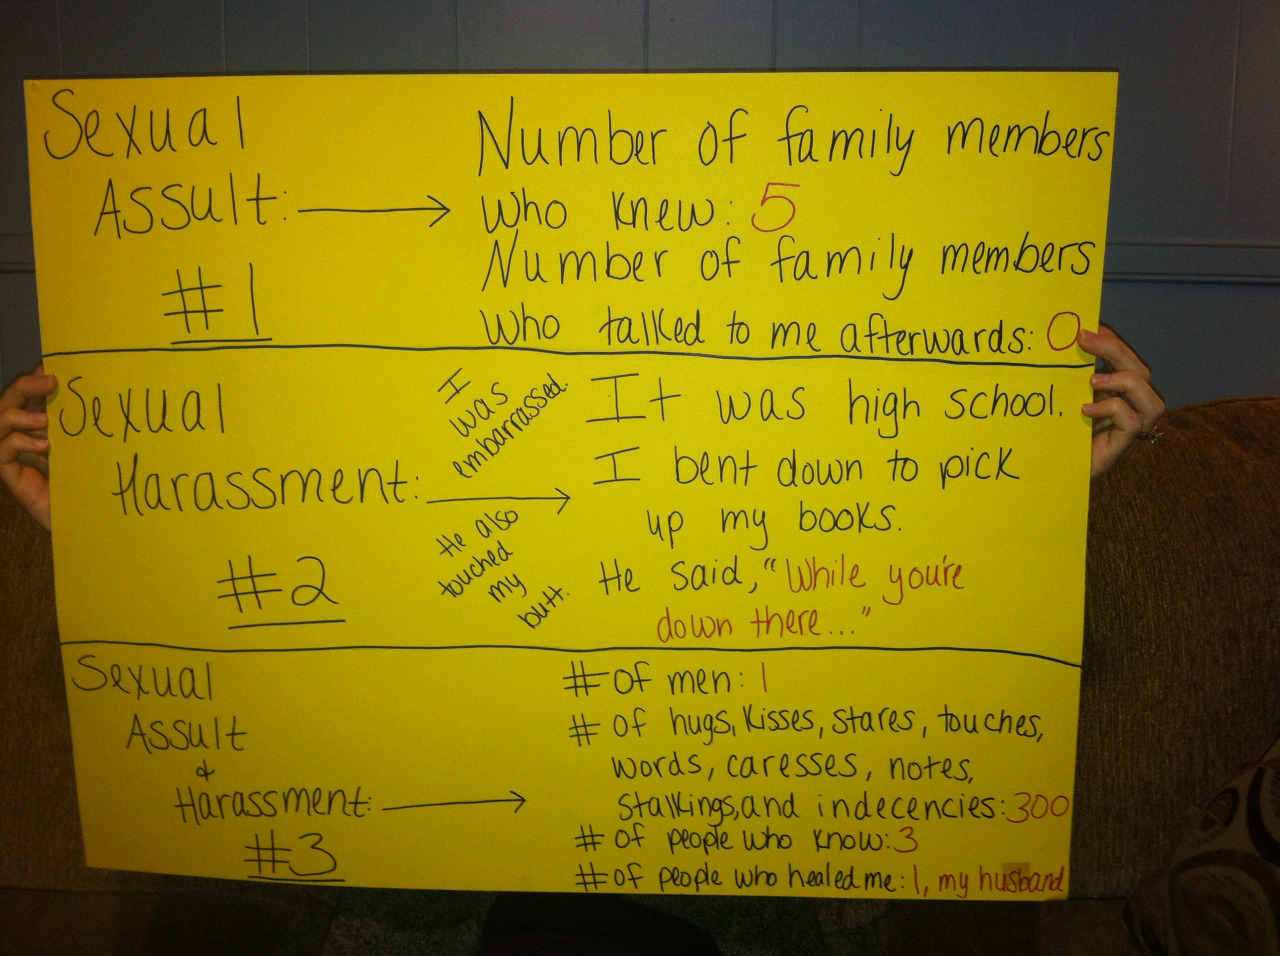 Sexual
Assult:
#1
Number of family members
who knew: 5
Number of family members
who talked to me afterwards: 0
Sexual
Harassment:
#2
I
was
embarrassed.
He also
touched
my
butt.
It was high school.
I bent down to pick
up my books.
He said, "While you're
down there..."
Sexual
Assult
&
Harassment:
#3
# of men: 1
# of hugs, kisses, stares, touches,
words, caresses, notes,
stalkings, and indecencies: 300
# of people who know: 3
# of people who healed me: 1, my husband